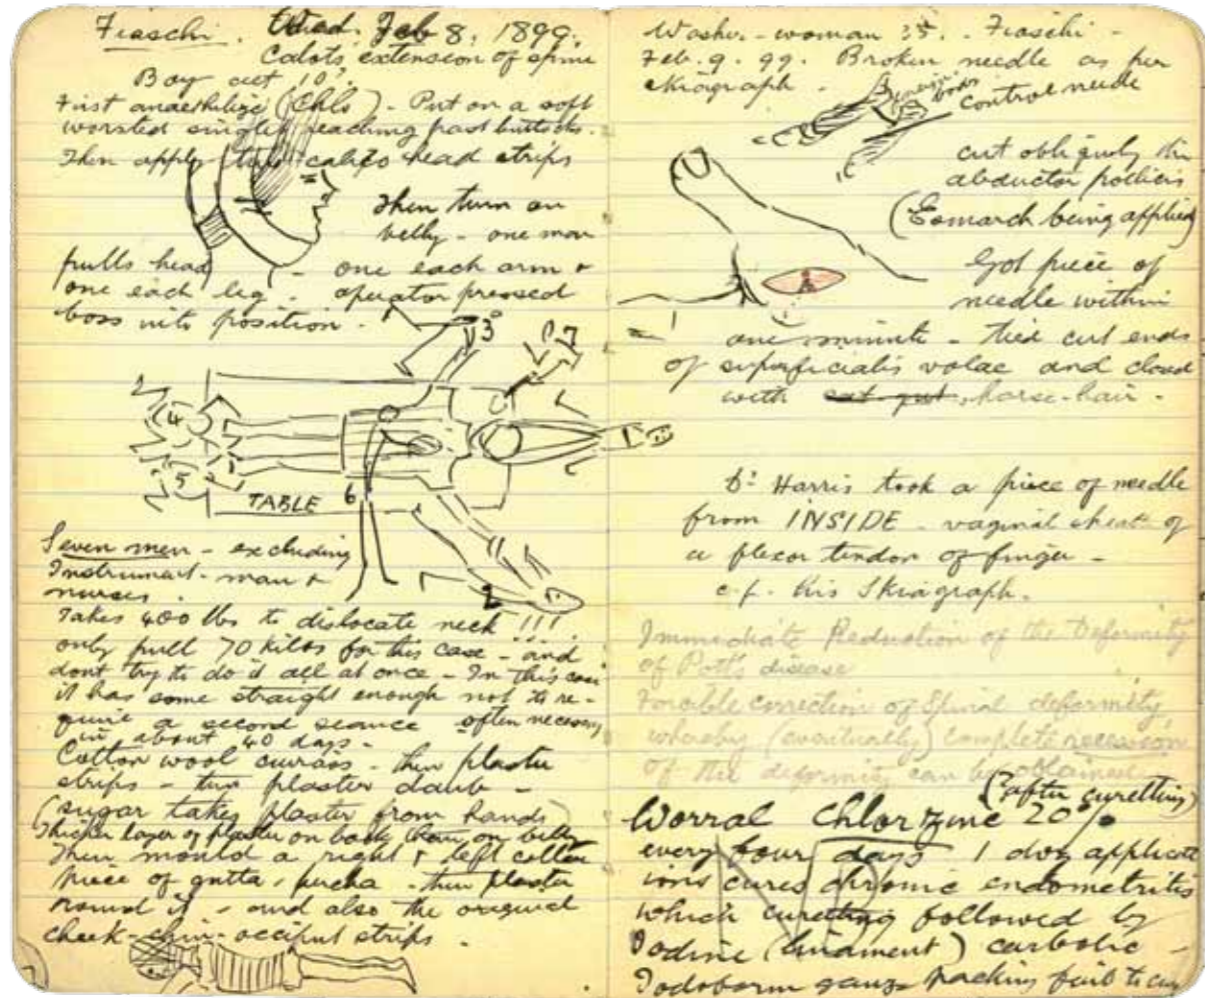 Fiaschi. Wed. Feb 8. 1899.
Calot's extension of spine
Boy aet 10?.
First anaesthetize (Chlo) - Put on a soft
worsted singlet reaching past buttocks.
Then apply two calico head strips
Then turn on
belly - one man
pulls head - one each arm &
one each leg. operator pressed
boss into position.
3
7
2
4
5
TABLE 6
2
Seven men - excluding
Instrument-man &
nurses.
Takes 400 lbs to dislocate neck!!!
only pull 70 kilos for this case - and
dont try to do it all at once - In this case
it has come straight enough not to re-
quire a second seance often necessary
in about 40 days -
Cotton wool cuirass - then plaster
strips - then plaster daub -
(sugar takes plaster from hands)
Thicker layer of plaster on back than on belly
Then mould a right & left collar
piece of gutta-percha - then plaster
round it - and also the original
cheek-chin-occiput strips.
Washer-woman 35. - Fiaschi -
Feb. 9. 99. Broken needle as per
skiagraph.
control needle
cut obliquely thro
abductor pollicis
(Esmarch being applied)
Got piece of
needle within
one minute - tied cut ends
of superficialis volae and closed
with cat-gut, horse-hair.
Dr Harris took a piece of needle
from INSIDE - vaginal sheath of
a flexor tendon of finger -
c.f. his Skiagraph.
Immediate Reduction of the Deformity
of Pott's disease
Forcible correction of Spinal deformity,
whereby (eventually) complete recession
of the deformity can be obtained
(?after curetting)
Worral Chlor Zinc 20%
every four days 1 doz applicat
ions cures chronic endometritis
which curetting followed by
Iodine (liniament) carbolic -
Iodoform gauze packing fail to cure